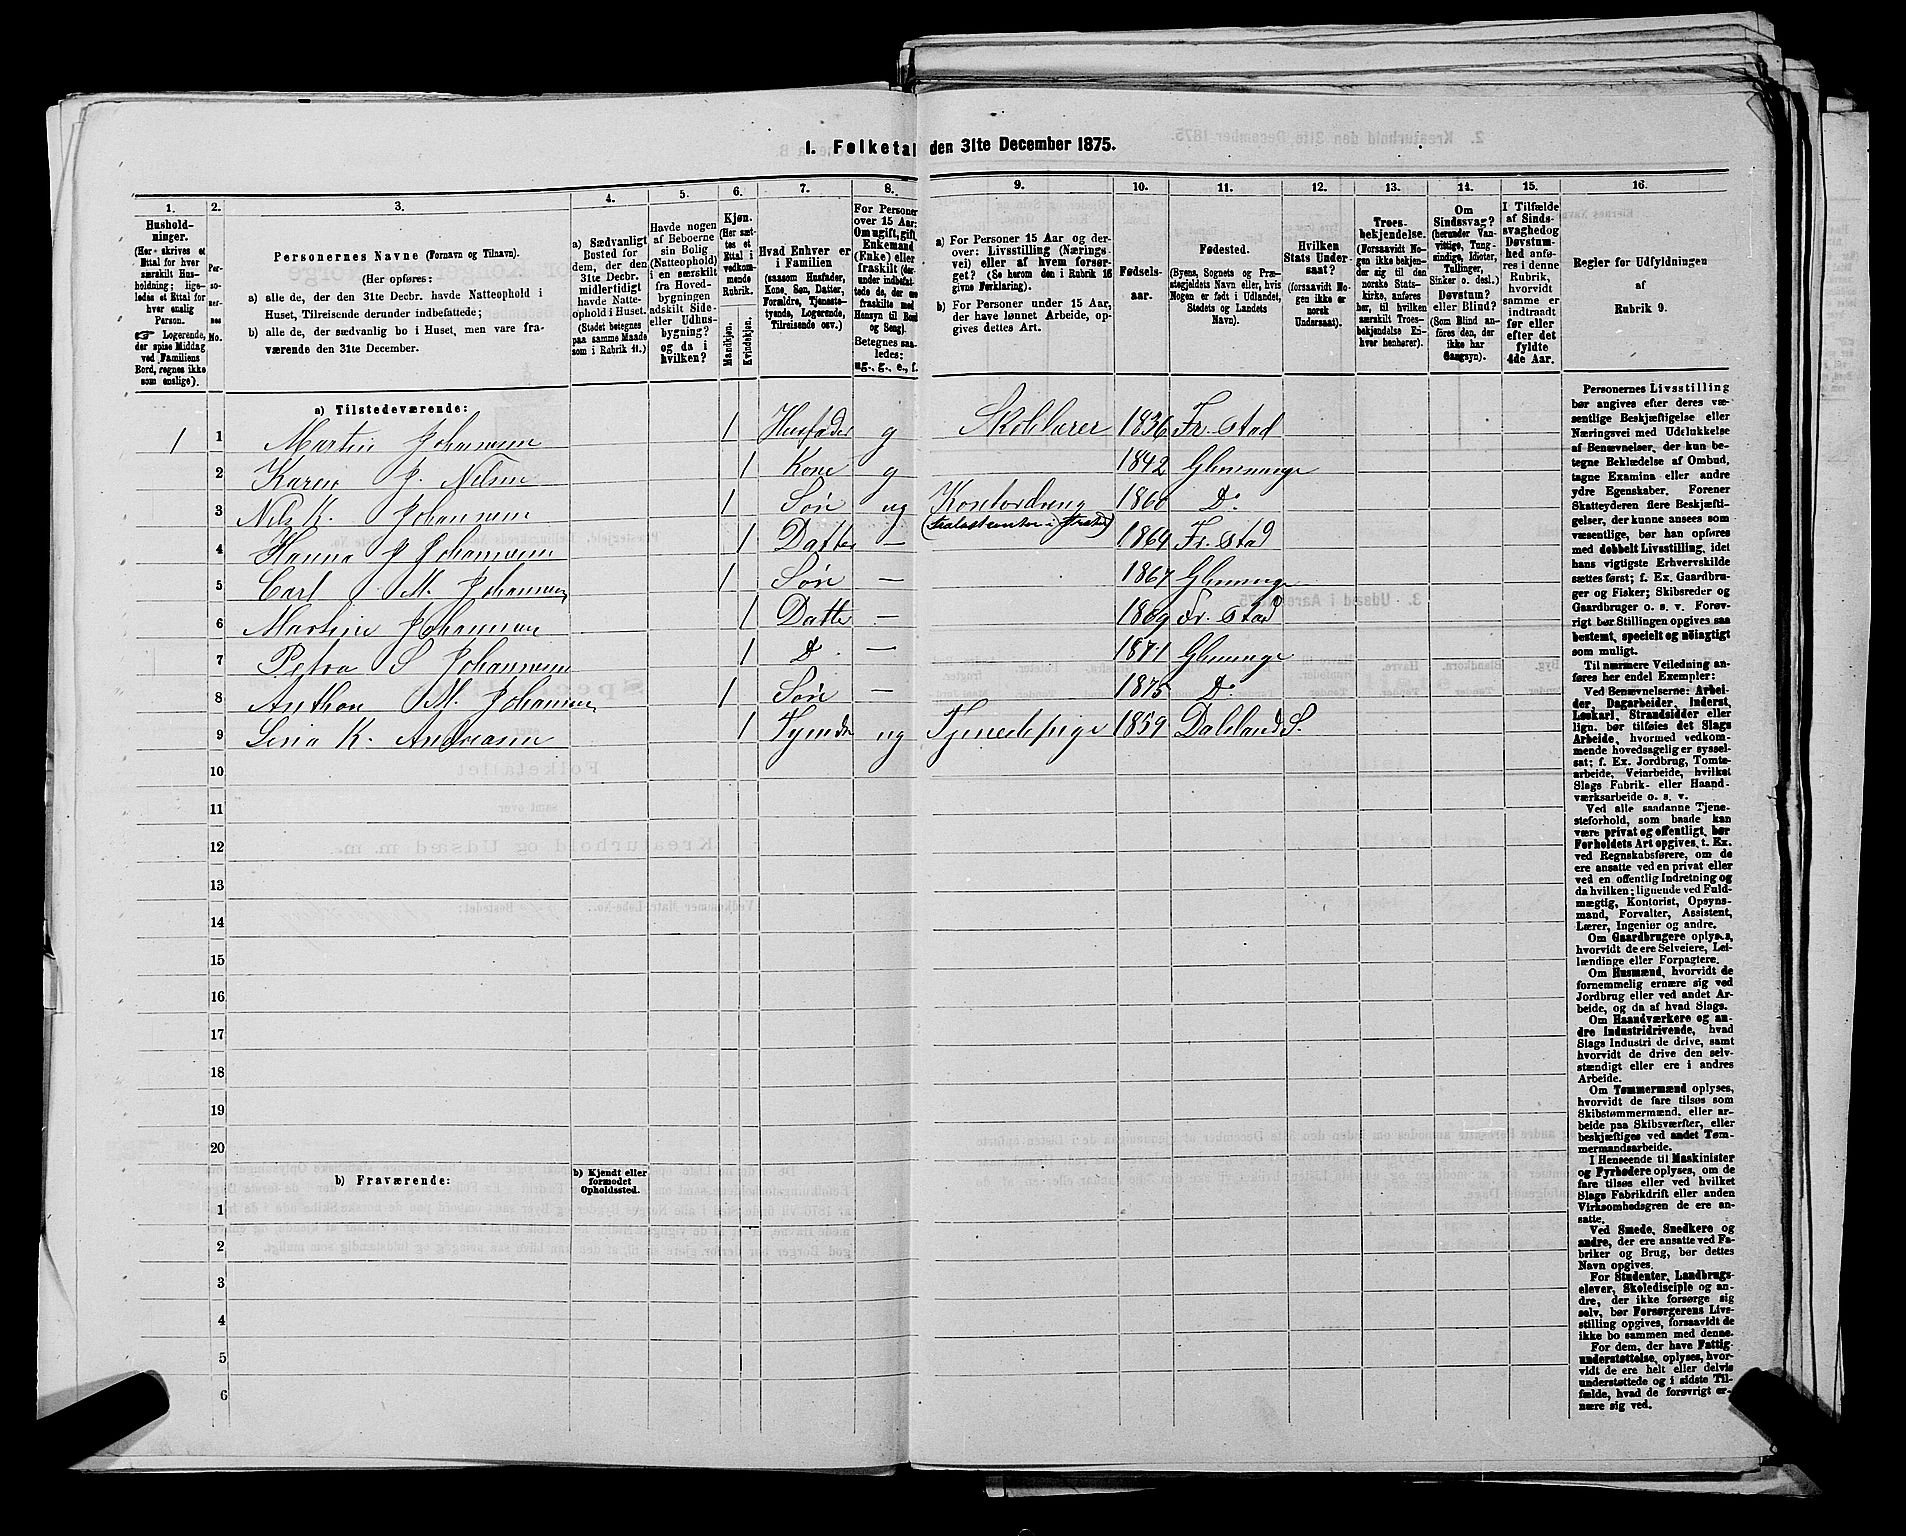 I. Folketal den 31te December 1875.
1. 2. 3. 4. 5. 6. 7. 8. 9. 10. 11. 12. 13. 14. 15. 16.
Hushold-
ninger.
(Her skrives et
Ettal for hver
særskilt Hus-
holdning; lige-
ledes et Ettal for
hver enslig
Person.
☞ Logerende,
der spise Middag
ved Familiens
Bord, regnes ikke
som enslige).
Per-
so-
ner-
nes
No.
Personernes Navne (Fornavn og Tilnavn).
(Her opføres:
a) alle de, der den 31te Decbr. havde Natteophold i
Huset, Tilreisende derunder indbefattede;
b) alle de, der sædvanlig bo i Huset, men vare fra-
værende den 31te December.
a) Sædvanligt
Bosted for
dem, der den
31te Decbr.
midlertidigt
havde Natte-
ophold i Huset.
(Stedet betegnes
paa samme Maade
som i Rubrik 11.)
Havde nogen
af Beboerne
sin Bolig
(Natteophold)
i en særskilt
fra Hoved-
bygningen
adskilt Side-
eller Udhus-
bygning?
og da i
hvilken?
Kjøn.
(Her sæt-
tes et
Ettal i
vedkom-
mende
Rubrik.
Mandkjøn.
Kvindekjøn.
Hvad Enhver er
i Familien
(saasom Husfader,
Kone, Søn, Datter,
Forældre, Tjeneste-
tyende, Logerende,
Tilreisende osv.)
For Personer
over 15 Aar:
Om ugift, gift,
Enkemand
(Enke) eller
fraskilt (der-
under indbefat-
tede de, der ere
fraskilte med
Hensyn til Bord
og Seng).
Betegnes saa-
ledes:
ug., g., e., f.
a) For Personer 15 Aar og der-
over: Livsstilling (Nærings-
vei) eller af hvem forsør-
get? (Se herom den i Rubrik 16
givne Forklaring).
b) For Personer under 15 Aar,
der have lønnet Arbeide, op-
gives dettes Art.
Fødsels-
aar.
Fødested.
(Byens, Sognets og Præ-
stegjeldets Navn eller, hvis
Nogen er født i Udlandet,
Stedets og Landets
Navn).
Hvilken
Stats Under-
saat?
(forsaavidt No-
gen ikke er
norsk
Undersaat).
Troes-
bekjendelse.
(Forsaavidt No-
gen ikke bekjen-
der sig til den
norske Stats-
kirke, anføres
her, til hvilken
særskilt Troes-
bekjendelse En-
hver henhører).
Om
Sindssvag?
(herunder Van-
vittige, Tung-
sindige, Idioter,
Tullinger,
Sinker o. desl.)
Døvstum?
eller Blind?
(Som Blind an-
føres den, der
ikke har
Gangsyn).
I Tilfælde
af Sinds-
svaghed og
Døvstum-
hed anfø-
res i denne
Rubrik,
hvorvidt
samme er
indtraadt
før eller
efter det
fyldte
4de Aar.
Regler for Udfyldningen
af
Rubrik 9.
a) Tilstedeværende:
1 1 Martin Johannesen 1 Husfader g Skolelærer 1836 Fr.stad
2 Karen J. Nilsen 1 Kone g 1842 Glemminge
3 Nils K. Johannesen 1 Søn ug 1860 Do
4 Hanna J Johannesen 1 Datter — 1864 Fr. stad
5 Carl M. Johannesen 1 Søn — 1867 Glemminge
6 Martine Johannesen 1 Datter — 1869 Fr. stad
7 Petra S Johannesen 1 D. — 1871 Glemminge
8 Anthon M. Johannesen 1 Søn — 1875 Do
9 Lina K. Andreasen 1 ug Tjenestepige 1859 Dalsland S.
10
11
12
13
14
15
16
17
18
19
20
b) Fraværende:
b) Kjendt eller
formodet
Opholdssted.
1
2
3
4
5
6
Personernes Livsstilling
bør angives efter deres væ-
sentlige Beskjæftigelse eller
Næringsvei med Udelukkelse
af Benævnelser, der kun be-
tegne Beklædelse af Ombud,
tagne Examina eller andre
ydre Egenskaber. Forener
Skatteyderen flere Beskjæfti-
gelser, der kunne ansees som
væsentlige, bør han opføres
med dobbelt Livsstilling, idet
hans vigtigste Erhvervskilde
sættes først; f. Ex. Gaardbru-
ger og Fisker; Skibsreder og
Gaardbruger o. s. v. Forøv-
rigt bør Stillingen opgives saa
bestemt, specielt og nöiagtigt
som muligt.
Til nærmere Veiledning an-
føres her endel Exempler:
Ved Benævnelserne: Arbei-
der, Dagarbeider, Inderst,
Løskarl, Strandsidder eller
lign. bør tilføies det Slags
Arbeide, hvormed vedkom-
mende hovedsagelig er syssel-
sat; f. Ex. Jordbrug, Tomte-
arbeide, Veiarbeide, hvilket
Slags Fabrik- eller Haand-
værksarbeide o. s. v.
Ved alle saadanne Tjene-
steforhold, som baade kan
være privat og offentligt, bør
Forholdets Art opgives, t. Ex.
ved Regnskabsførere, om de
ere ansatte ved en privat eller
ved en offentlig Indretning og
da hvilken; lignende ved Fuld-
mægtig, Kontorist, Opsyns-
mand, Forvalter, Assistent,
Lærer, Ingeniør og andre.
Om Gaardbrugere oplyses,
hvorvidt de ere Selveiere, Lei-
lændinge eller Forpagtere.
Om Husmænd, hvorvidt de
fornemmelig ernære sig ved
Jordbrug eller ved andet Ar-
beide, og da af hvad Slags.
Om Haandværkere og an-
dre Industridrivende, hvad
Slags Industri de drive, samt
hvorvidt de drive den selv-
stændigt eller ere i andres
Arbeide.
Om Tømmermænd oplyses,
hvorvidt de fare tilsøs som
Skibstømmermænd, eller ar-
beide paa Skibsværfter, eller
beskjæftiges ved andet Tøm-
mermandsarbeide.
I Henseende til Maskinister
og Fyrbødere oplyses, om de
fare tilsøs eller ved hvilket
Slags Fabrikdrift eller anden
Virksomhedsgren de ere an-
satte.
Ved Smede, Snedkere og
andre, der ere ansatte ved Fa-
briker og Brug, bør dettes
Navn opgives.
For Studenter, Landbrugs-
elever, Skoledisciple og an-
dre, der ikke forsørge sig
selv, bør Forsørgerens Livs-
stilling opgives, forsaavidt de
ikke bo sammen med denne.
For dem, der have Fattig-
understøttelse, oplyses, hvor-
vidt de ere helt eller delvis
understøttede og i sidste Til-
fælde, hvad de forøvrigt er-
nære sig ved.